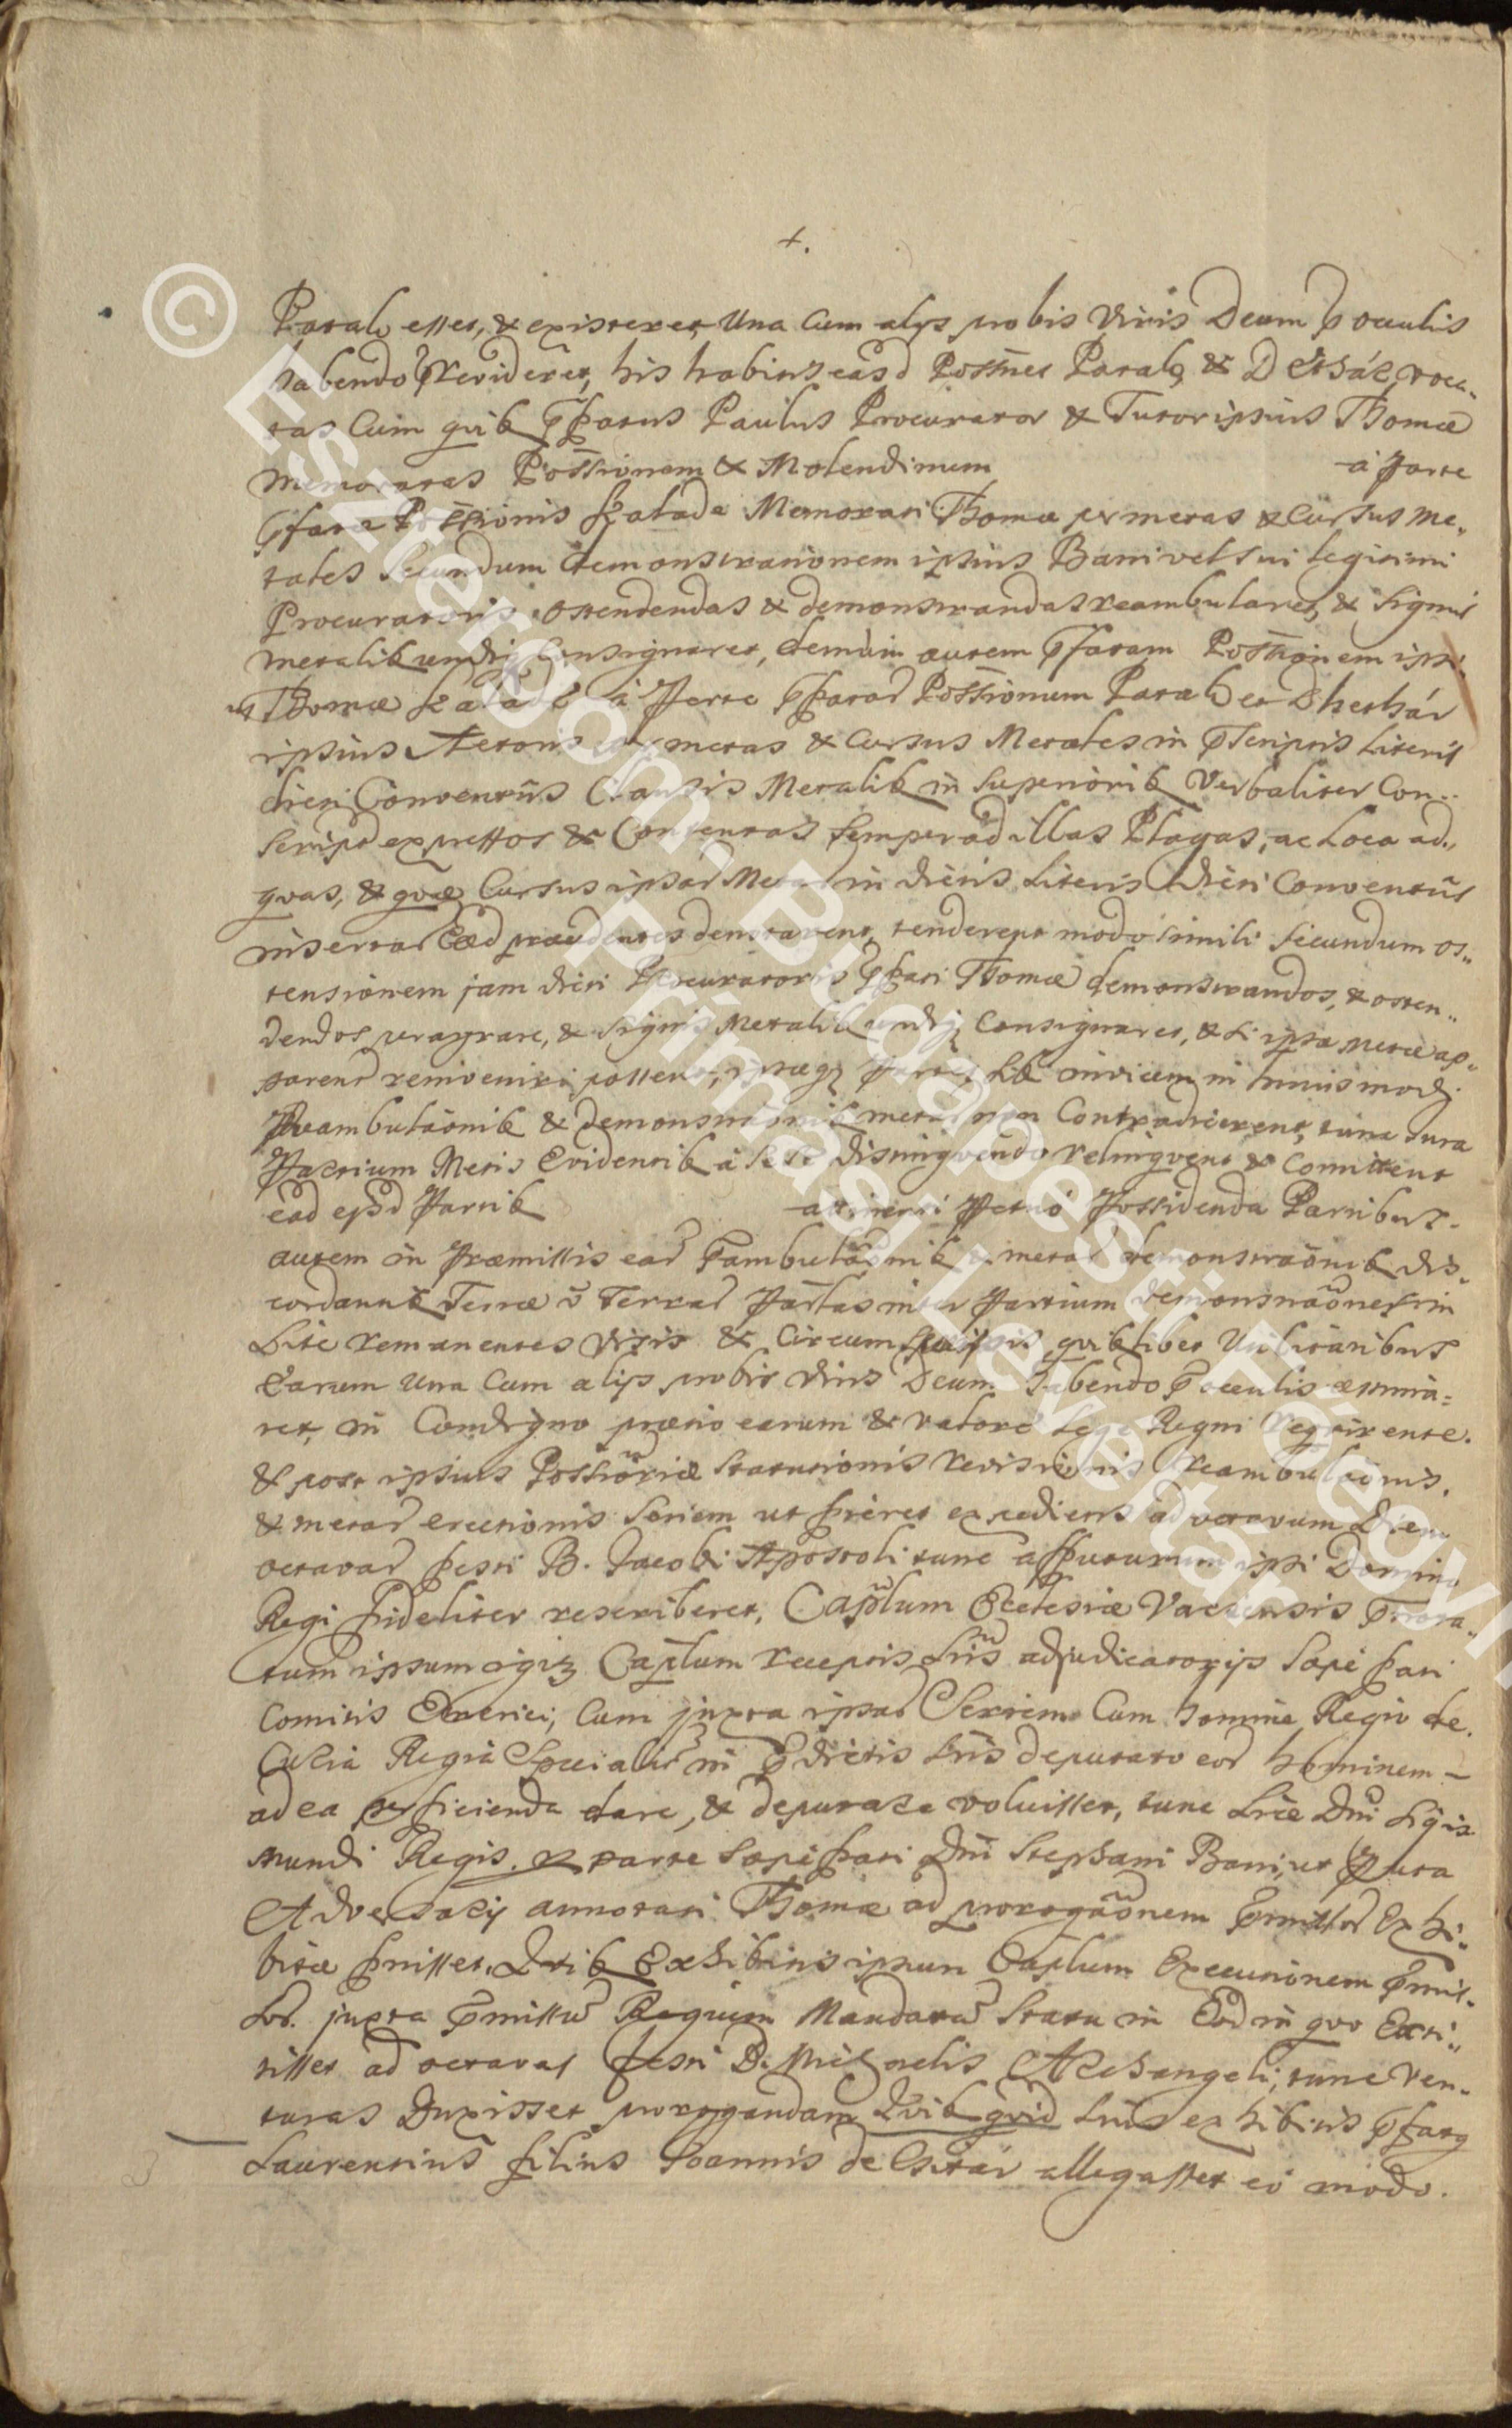 +.
Patak esset, & existeret, Una Cum alys probis Viris Deum p oculis
habendo p̄revideret, his habitis easd Possnes Patak & Dershár, voca-
tas Cum quib p̄fatus Paulus Procurator & Tutor ipsius Thomæ
memoratas Possionem & Molendinum a parte
p̄fatæ Possionis Szakada Memorati Thomæ per metas & Cursus me-
tales Secundum demonstrationem ipsius Bani vel sui legitimi
Procuratoris ostendendas & demonstrandas reambularet, & Signis
metalib undiq Consignaret, demum autem p̄fatam Possionem ipsi-
us Thomæ a Parte p̄fatar Possionum Patak et Dhershár
ipsius Actoris metas & Cursus Metales in p̄scriptis Literis
dicti Conventus Clausis Metalib in Superiorib Verbaliter Con-
script expressos & Contentas Semper ad illas Plagas, ac Loca ad
quas, & quæ Cursus ipsar Metar in dictis Literis dicti Conventus
insertar denotarent, tenderent modo simili Secundum os-
tensionem jam dicti Procuratoris p̄fati Thomæ demonstrandos, & osten-
dendos peragrare, & Signis Metalib undiq Consignaret, & si ipsæ Metæ ap-
parent reinveniri possent, ipsæq Partes Sib invicem in huiusmodi
Reambulaōnib & demonstraōnib metar non Contradicerent, tunc Jura
Partium Metis Evidentib a se se distinguendo relinqueret & Comitteret
ead Partib possidenda Partibus
autem in Præmissis ear reambulaōnib & metar demonstraōnib dis-
cordantib Terræ v Terrar Partlas inter Partium demonstraōnes in
Lite remanentes Visis & Circumspectis quiblibet Utilitatibus
Earum Una Cum alijs probis Viris Deum habendo p oculis æstima-
ret, in Condigno prætio earum & valore Lege Regni requirente.
& post ipsius Possioriæ Statutionis Revisionis reambulaōnis,
& metar erectionis Seriem ut fieret expediens ad octavum Diem
octavar festi B. Jacobi Apostoli tunc affuturum ipsi Domino
Regi fideliter rescriberet, Caplum Ecclesiæ Vaciensis p̄nota-
tum ipsum igiz Caplum receptis Lris adjudicatorijs Sæpefati
Comitis Emerici, Cum juxta ipsar Seriem Cum homine Regio de
Curia Regia Specialr in p̄dictis Lris deputato eor hominem
ad ea perficienda dare, & deputare voluisset, tunc Lræ Dni Sigis-
mundi Regis parte Sæpefati Dni Stephani Bani, ut puta
Adversarij annotati Thomæ ad prorogaōnem p̄missor Exhi-
bitæ fuissent, Quib Exhibitis ipsum Caplum Executionem p̄mis-
sor. juxta p̄missu Regium Mandatu Statu in Eod in quo Exti-
tisset ad octavas festi B. Michaelis Archangeli, tunc ven-
turas Duxisset prorogandam Quib quid Lris exhibitis p̄fatq
Laurentius filius Joannis de allegasset eo modo.